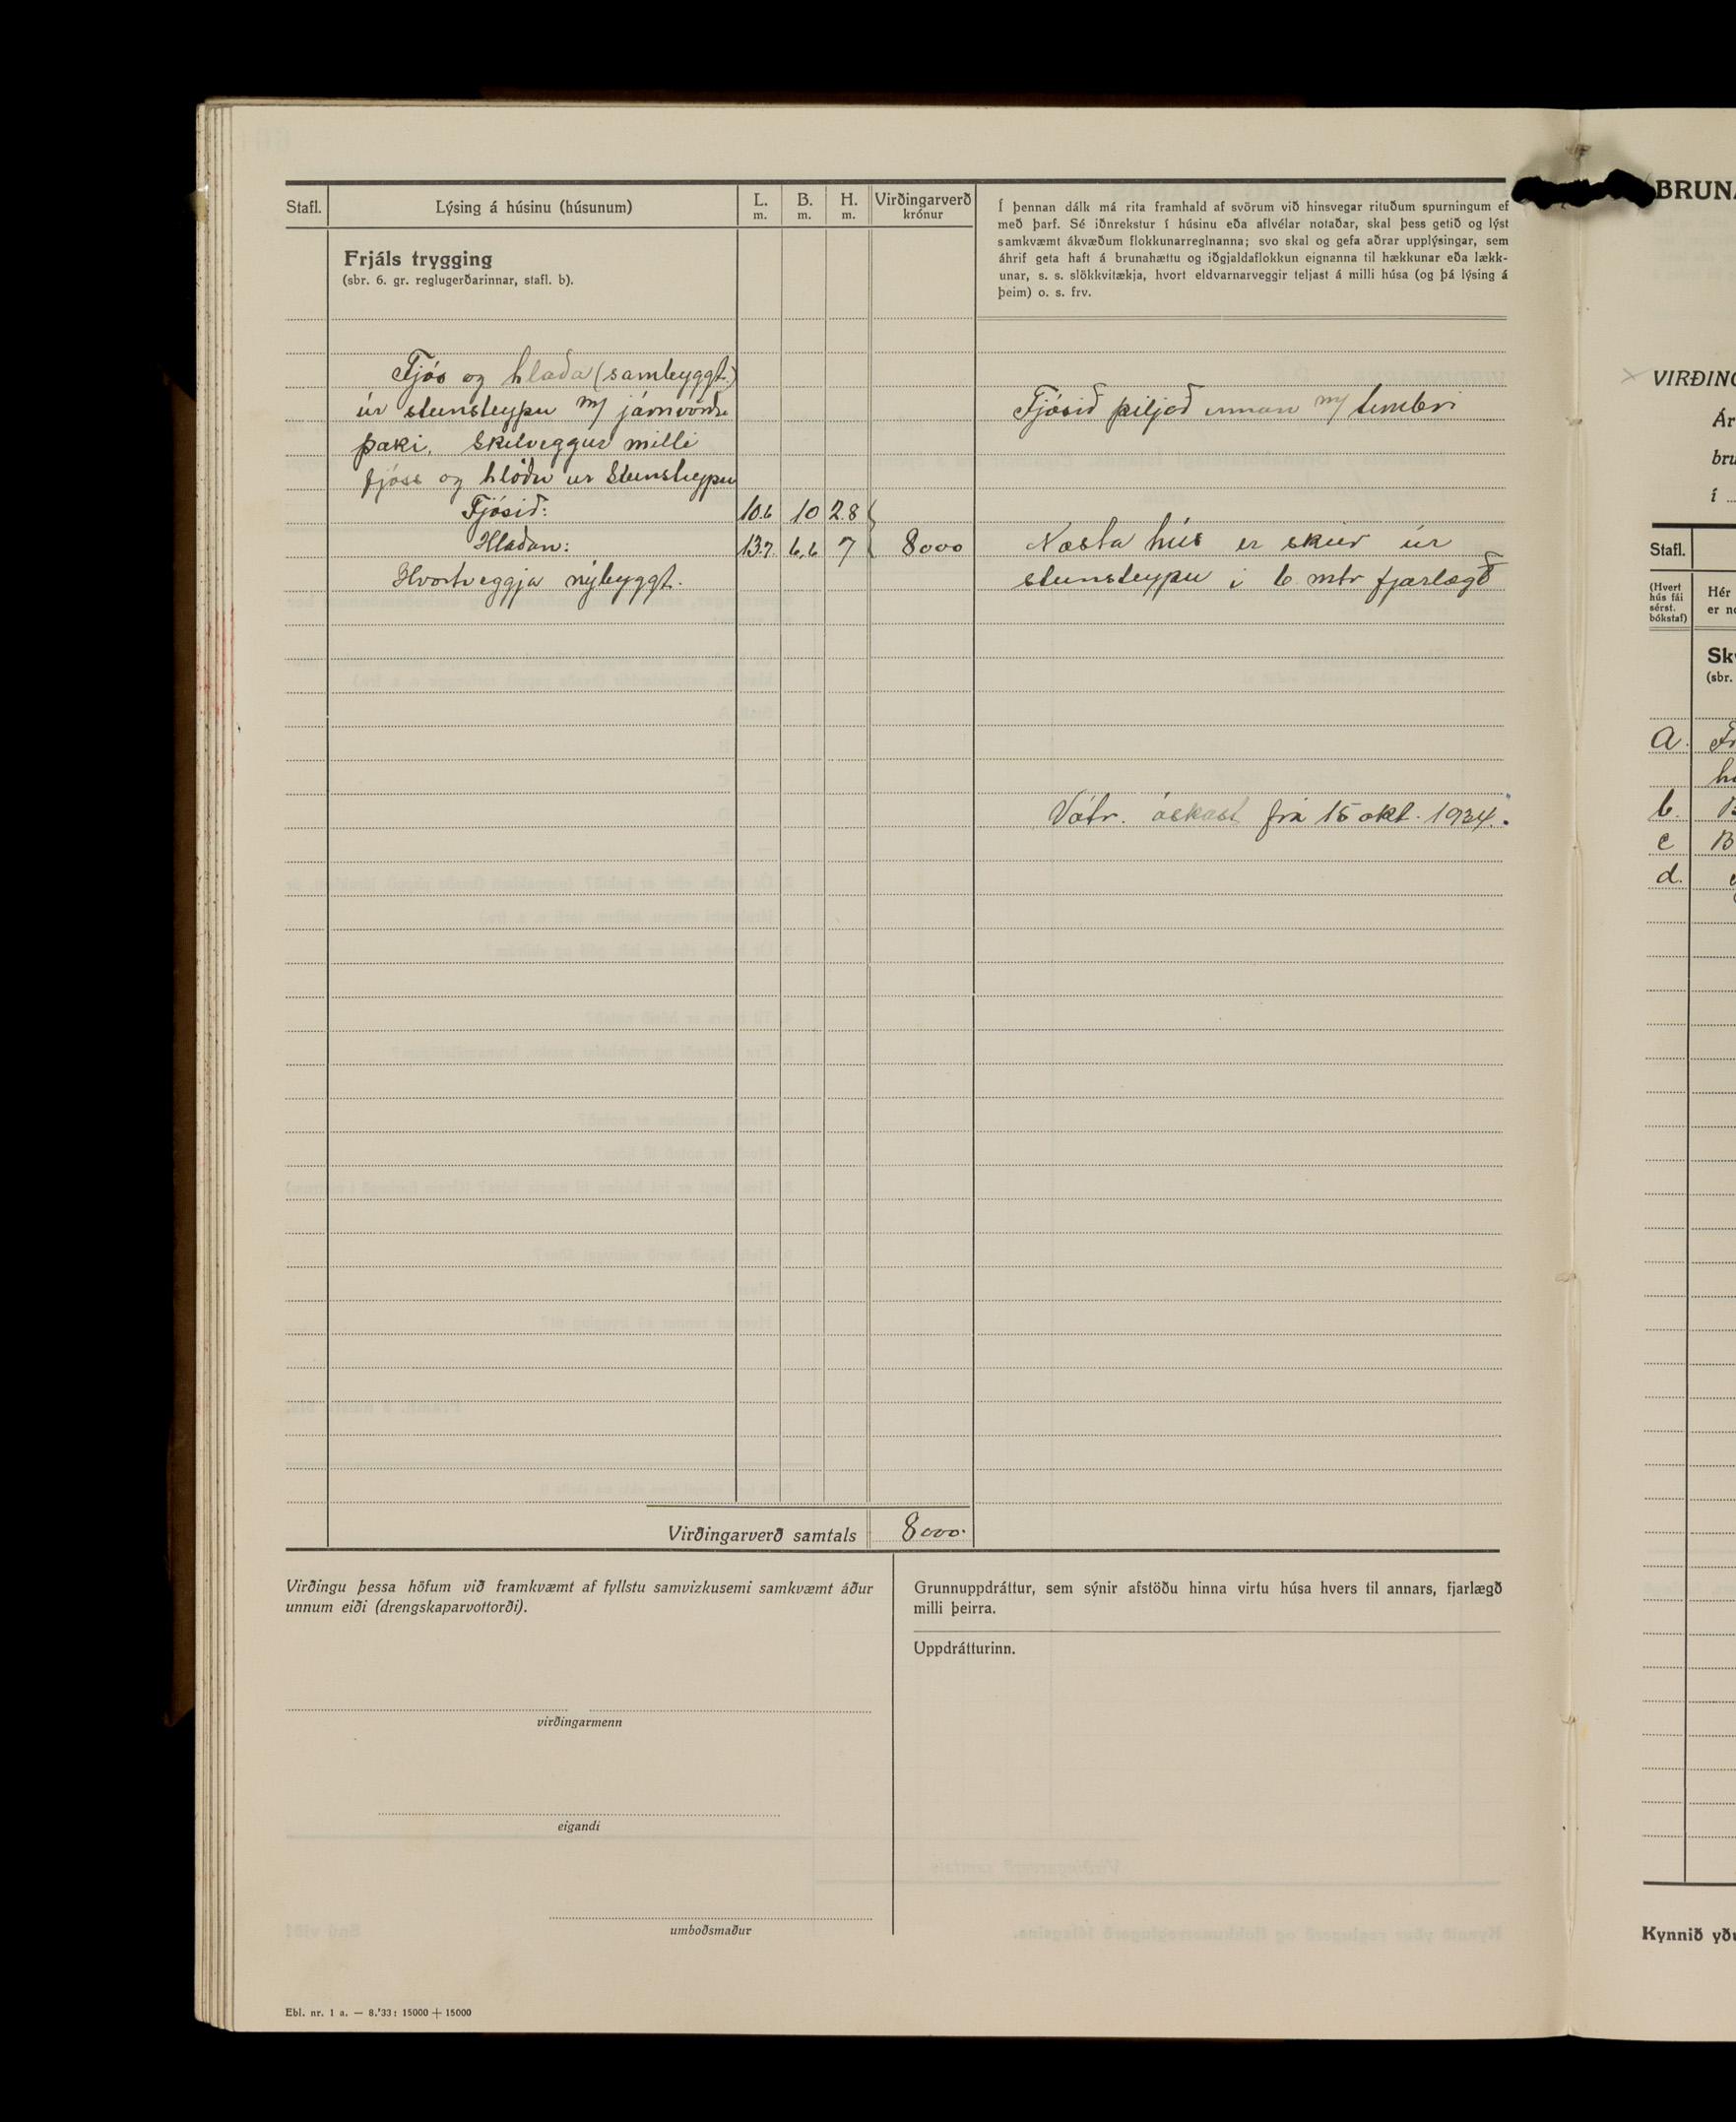 Stafl.
Lýsing á húsinu (húsunum)
L.
m.
B.
m.
H.
m.
Virðingarverð
krónur
Í þennan dálk má rita framhald af svörum við hinsvegar rituðum spurningum ef
með þarf. Sé iðnrekstur í húsinu eða aflvélar notaðar, skal þess getið og lýst
samkvæmt ákvæðum flokkunarreglnanna; svo skal og gefa aðrar upplýsingar, sem
áhrif geta haft á brunahættu og iðgjaldaflokkun eignanna til hækkunar eða lækk-
unar, s. s. slökkvitækja, hvort eldvarnarveggir teljast á milli húsa (og þá lýsing á
þeim) o. s. frv.
Frjáls trygging
(sbr. 6. gr. reglugerðarinnar, stafl. b).
Fjós og hlaða (sambyggt.)
úr steinsteypu m/ járnvörðu
þaki. Skilveggur milli
fjóss og hlöðu úr Steinsteypu
Fjósið: 10.6 10 2.8
Hlaðan: 13.7 6,6 7 8000
Hvortveggja nýbyggt.
Fjósið þiljað innan m/ timbri
Næsta hús er skúr úr
steinsteypu í 6 mtr fjarlægð
Vátr. óskast frá 15 okt. 1934.
Virðingarverð samtals 8000.
Virðingu þessa höfum við framkvæmt af fyllstu samvizkusemi samkvæmt áður
unnum eiði (drengskaparvottorði).
virðingarmenn
eigandi
umboðsmaður
Grunnuppdráttur, sem sýnir afstöðu hinna virtu húsa hvers til annars, fjarlægð
milli þeirra.
Uppdrátturinn.
Ebl. nr. 1 a. — 8.'33: 15000 + 15000
BRUNA
VIRÐING
Ár
bru
í
Stafl.
(Hvert
hús fái
sérst.
bókstaf)
Hér
er no
Sk
(sbr.
a.
b.
c
d.
Kynnið yðu